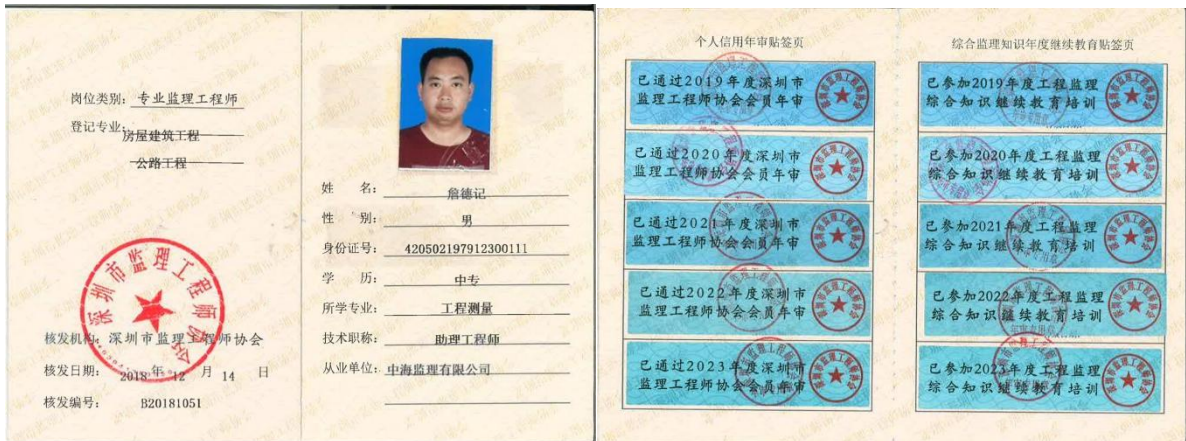 岗位类别：专业监理工程师
登记专业：房屋建筑工程
公路工程
深圳市监理工程师协会
核发机构：深圳市监理工程师协会
核发日期：2018年12月14日
核发编号：B20181051
姓名：詹德记
性别：男
身份证号：420502197912300111
学历：中专
所学专业：工程测量
技术职称：助理工程师
从业单位：中海监理有限公司
个人信用年审贴签页
已通过2019年度深圳市
监理工程师协会会员年审
已通过2020年度深圳市
监理工程师协会会员年审
已通过2021年度深圳市
监理工程师协会会员年审
已通过2022年度深圳市
监理工程师协会会员年审
已通过2023年度深圳市
监理工程师协会会员年审
综合监理知识年度继续教育贴签页
已参加2019年度工程监理
综合知识继续教育培训
已参加2020年度工程监理
综合知识继续教育培训
已参加2021年度工程监理
综合知识继续教育培训
已参加2022年度工程监理
综合知识继续教育培训
已参加2023年度工程监理
综合知识继续教育培训